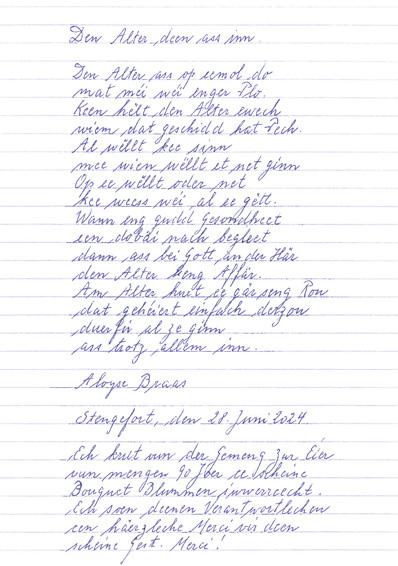 Den Alter, deen ass inn.
Den Alter ass op eemol do
mat méi wéi enger Plo.
Keen hëlt den Alter ewech
wiem dat geschidd hat Pech.
Al wëllt kee sinn
mee wien wëllt et net ginn
Op ee wëllt oder net
kee weess wéi al ee gëtt.
Wann eng gudd Gesondheet
een dobäi nach begleet
dann ass bei Gott an der Här
den Alter keng Affär.
Am Alter huet ee gär seng Rou
dat gehéiert einfach derzou
duerfir al ze ginn
ass trotz allem inn.
Aloyse Braas
Stengefort, den 28. Juni 2024
Ech krut vun der Gemeng zur Eier
vun mengen 90 Joer ee schéine
Bouquet Blummen iwwerreecht.
Ech soen deenen Verantwortlechen
een häerzleche Merci vir deen
schéine Gest. Merci!